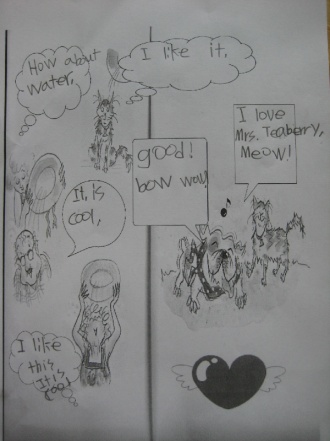 How about
water,
I like it,
I love
Mrs. Teaberry,
Meow!
good!
bow way
It, is
cool,
I like
this
It is
cool